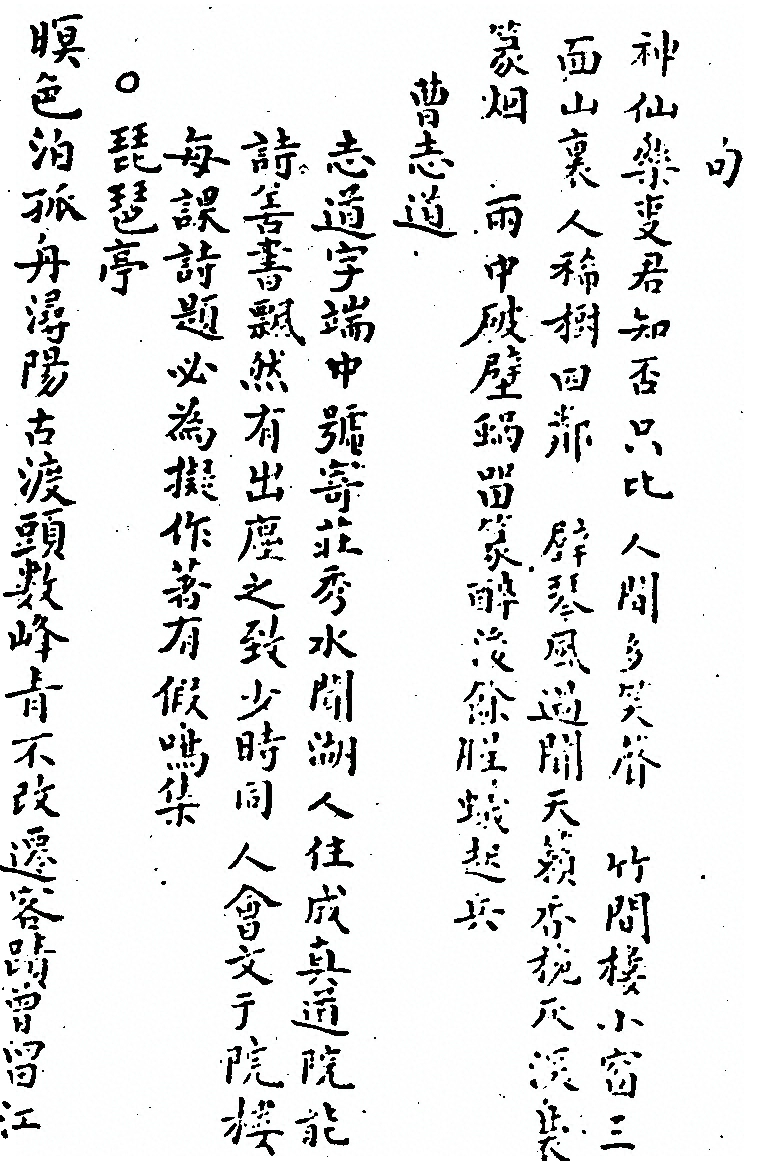 句
神仙樂隻君知否只比人間多笑聲　竹間樓小窗三
面山裏人稀樹四鄰　壁琴風過聞天籟香施灰深裊
篆烟　雨中破壁蝸留篆醉後餘腥蟻起兵
曹志道
志道字端中號寄莊秀水聞湖人住成真道院能
詩善書飄然有出塵之致少時同人會文于院樓
每課詩題必為擬作著有假鳴集
○琵琶亭
暝色泊孤舟潯陽古渡頭數峰青不改遷客蹟曾留江